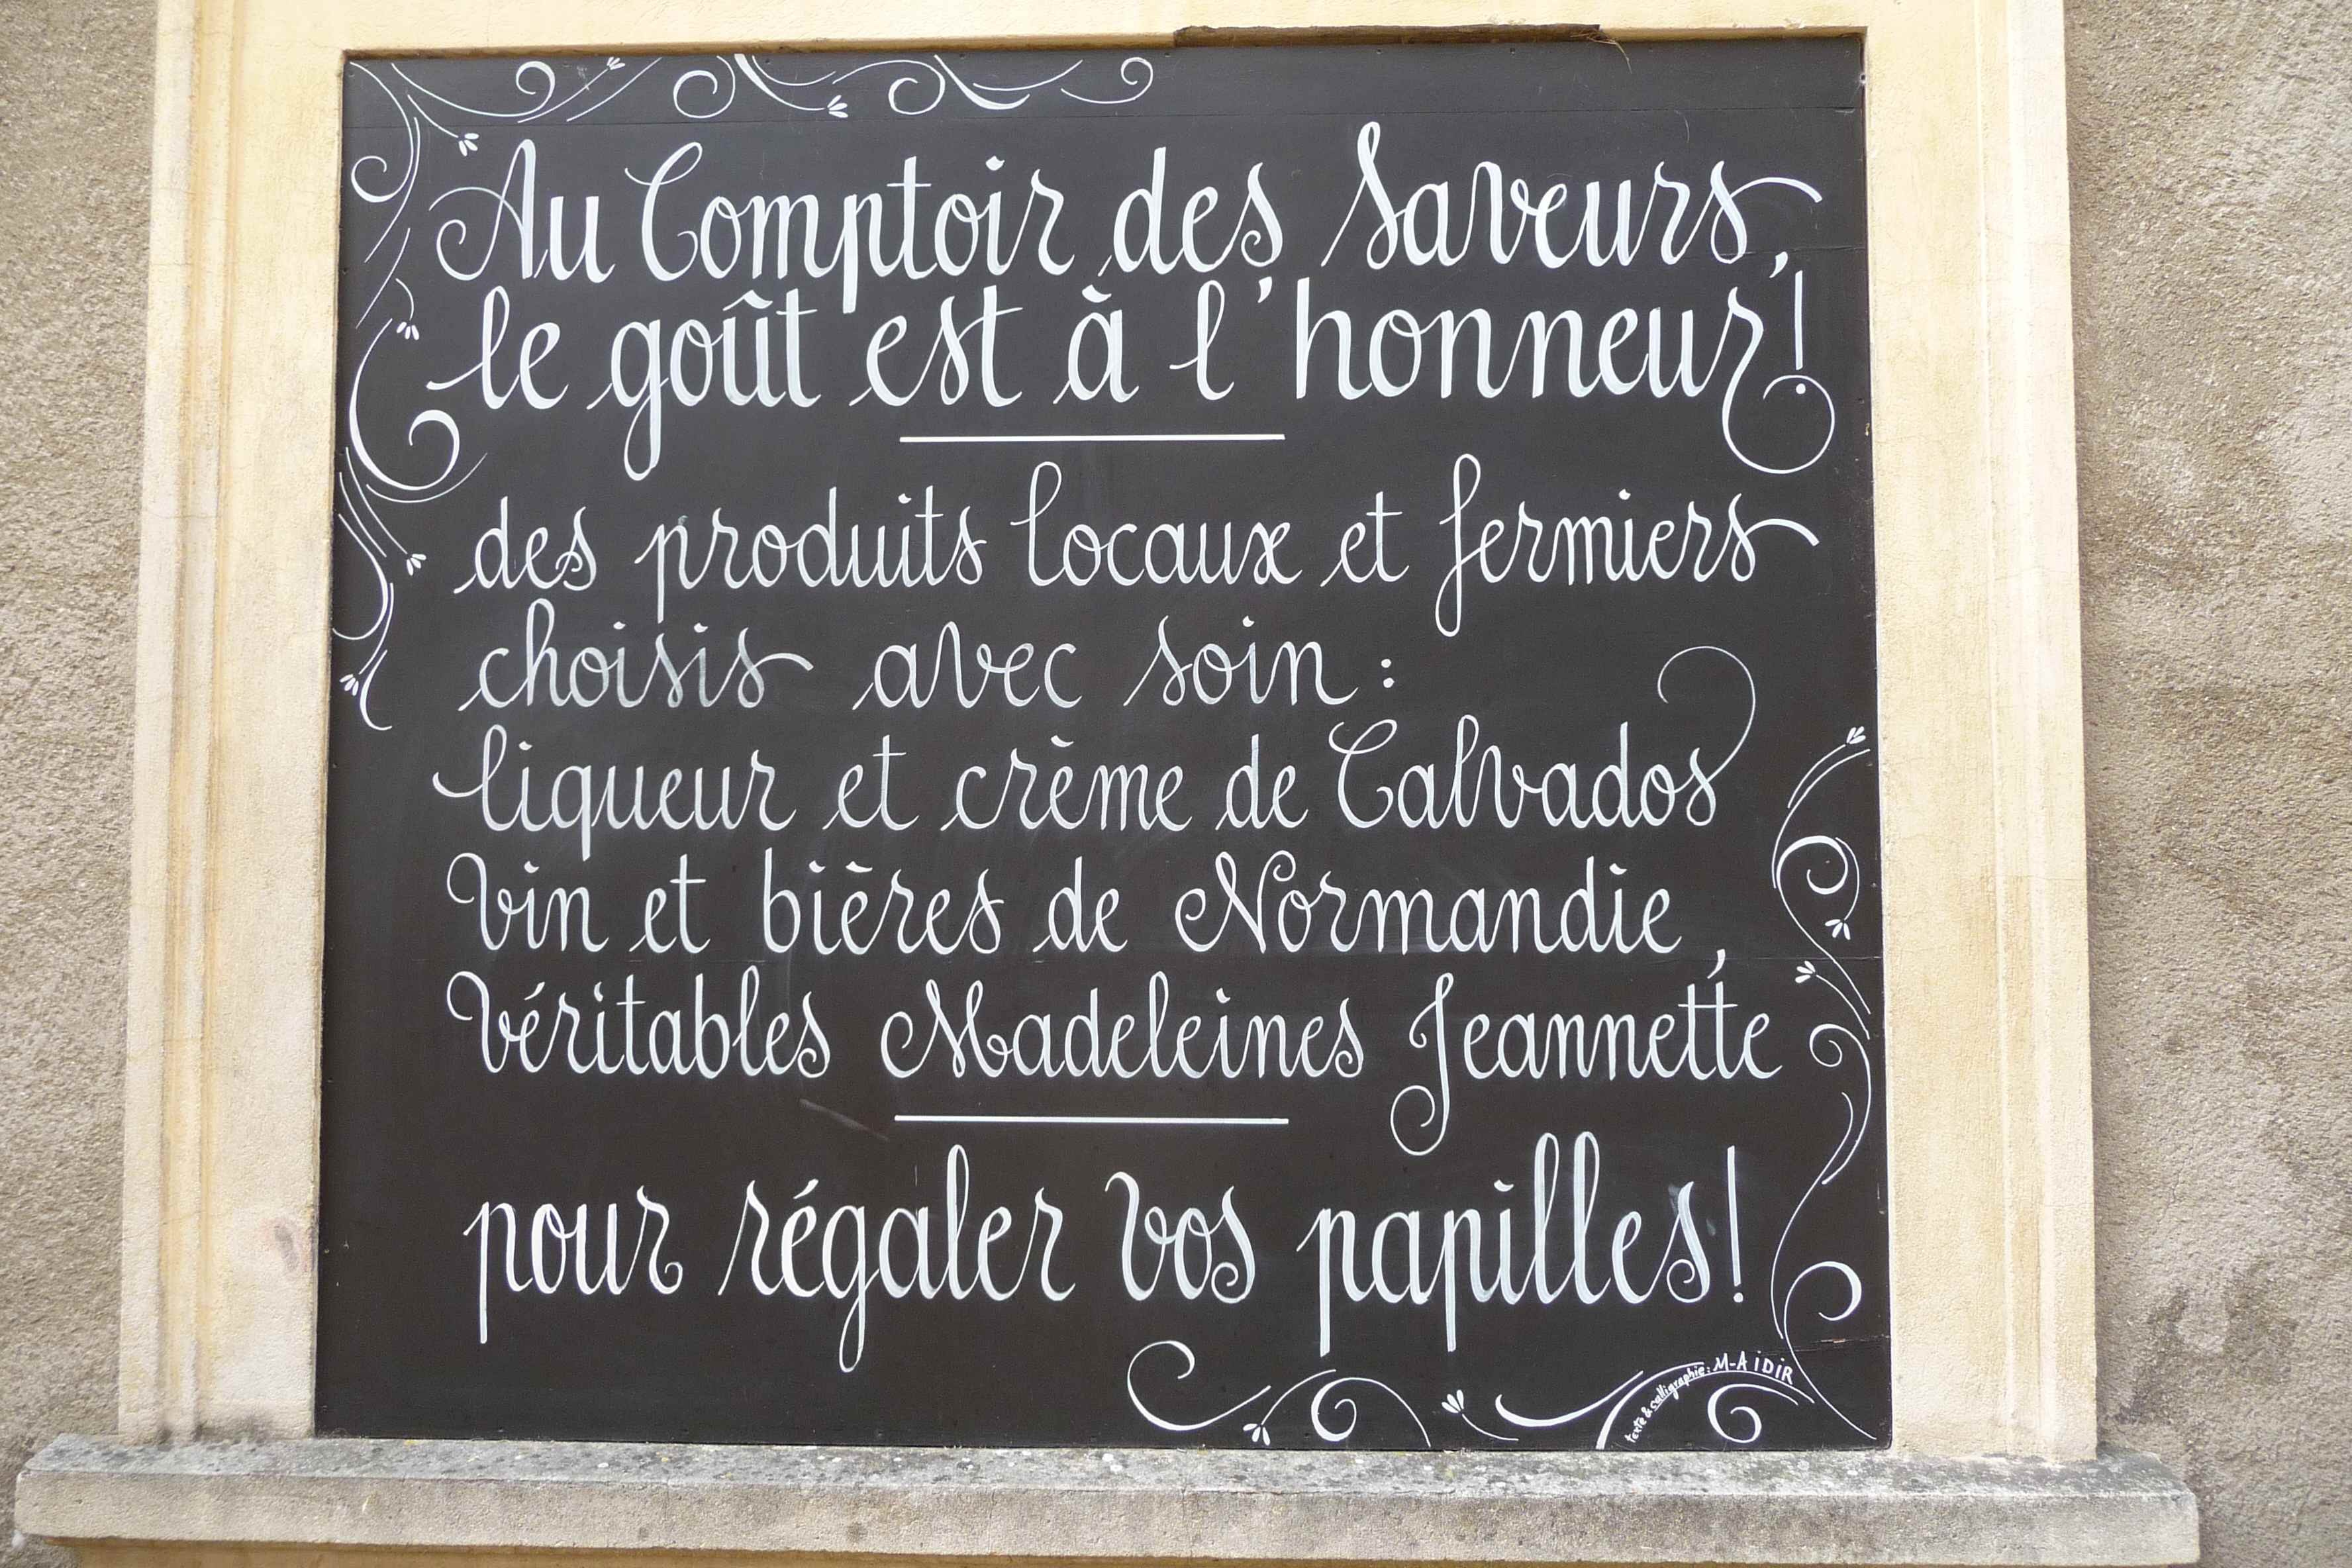 Au Comptoir des Saveurs,
le goût est à l'honneur!
des produits locaux et fermiers
choisis avec soin :
liqueur et crème de Calvados
Vin et bières de Normandie,
Véritables Madeleines Jeannette
pour régaler vos papilles!
texte & calligraphie: M-A iDiR